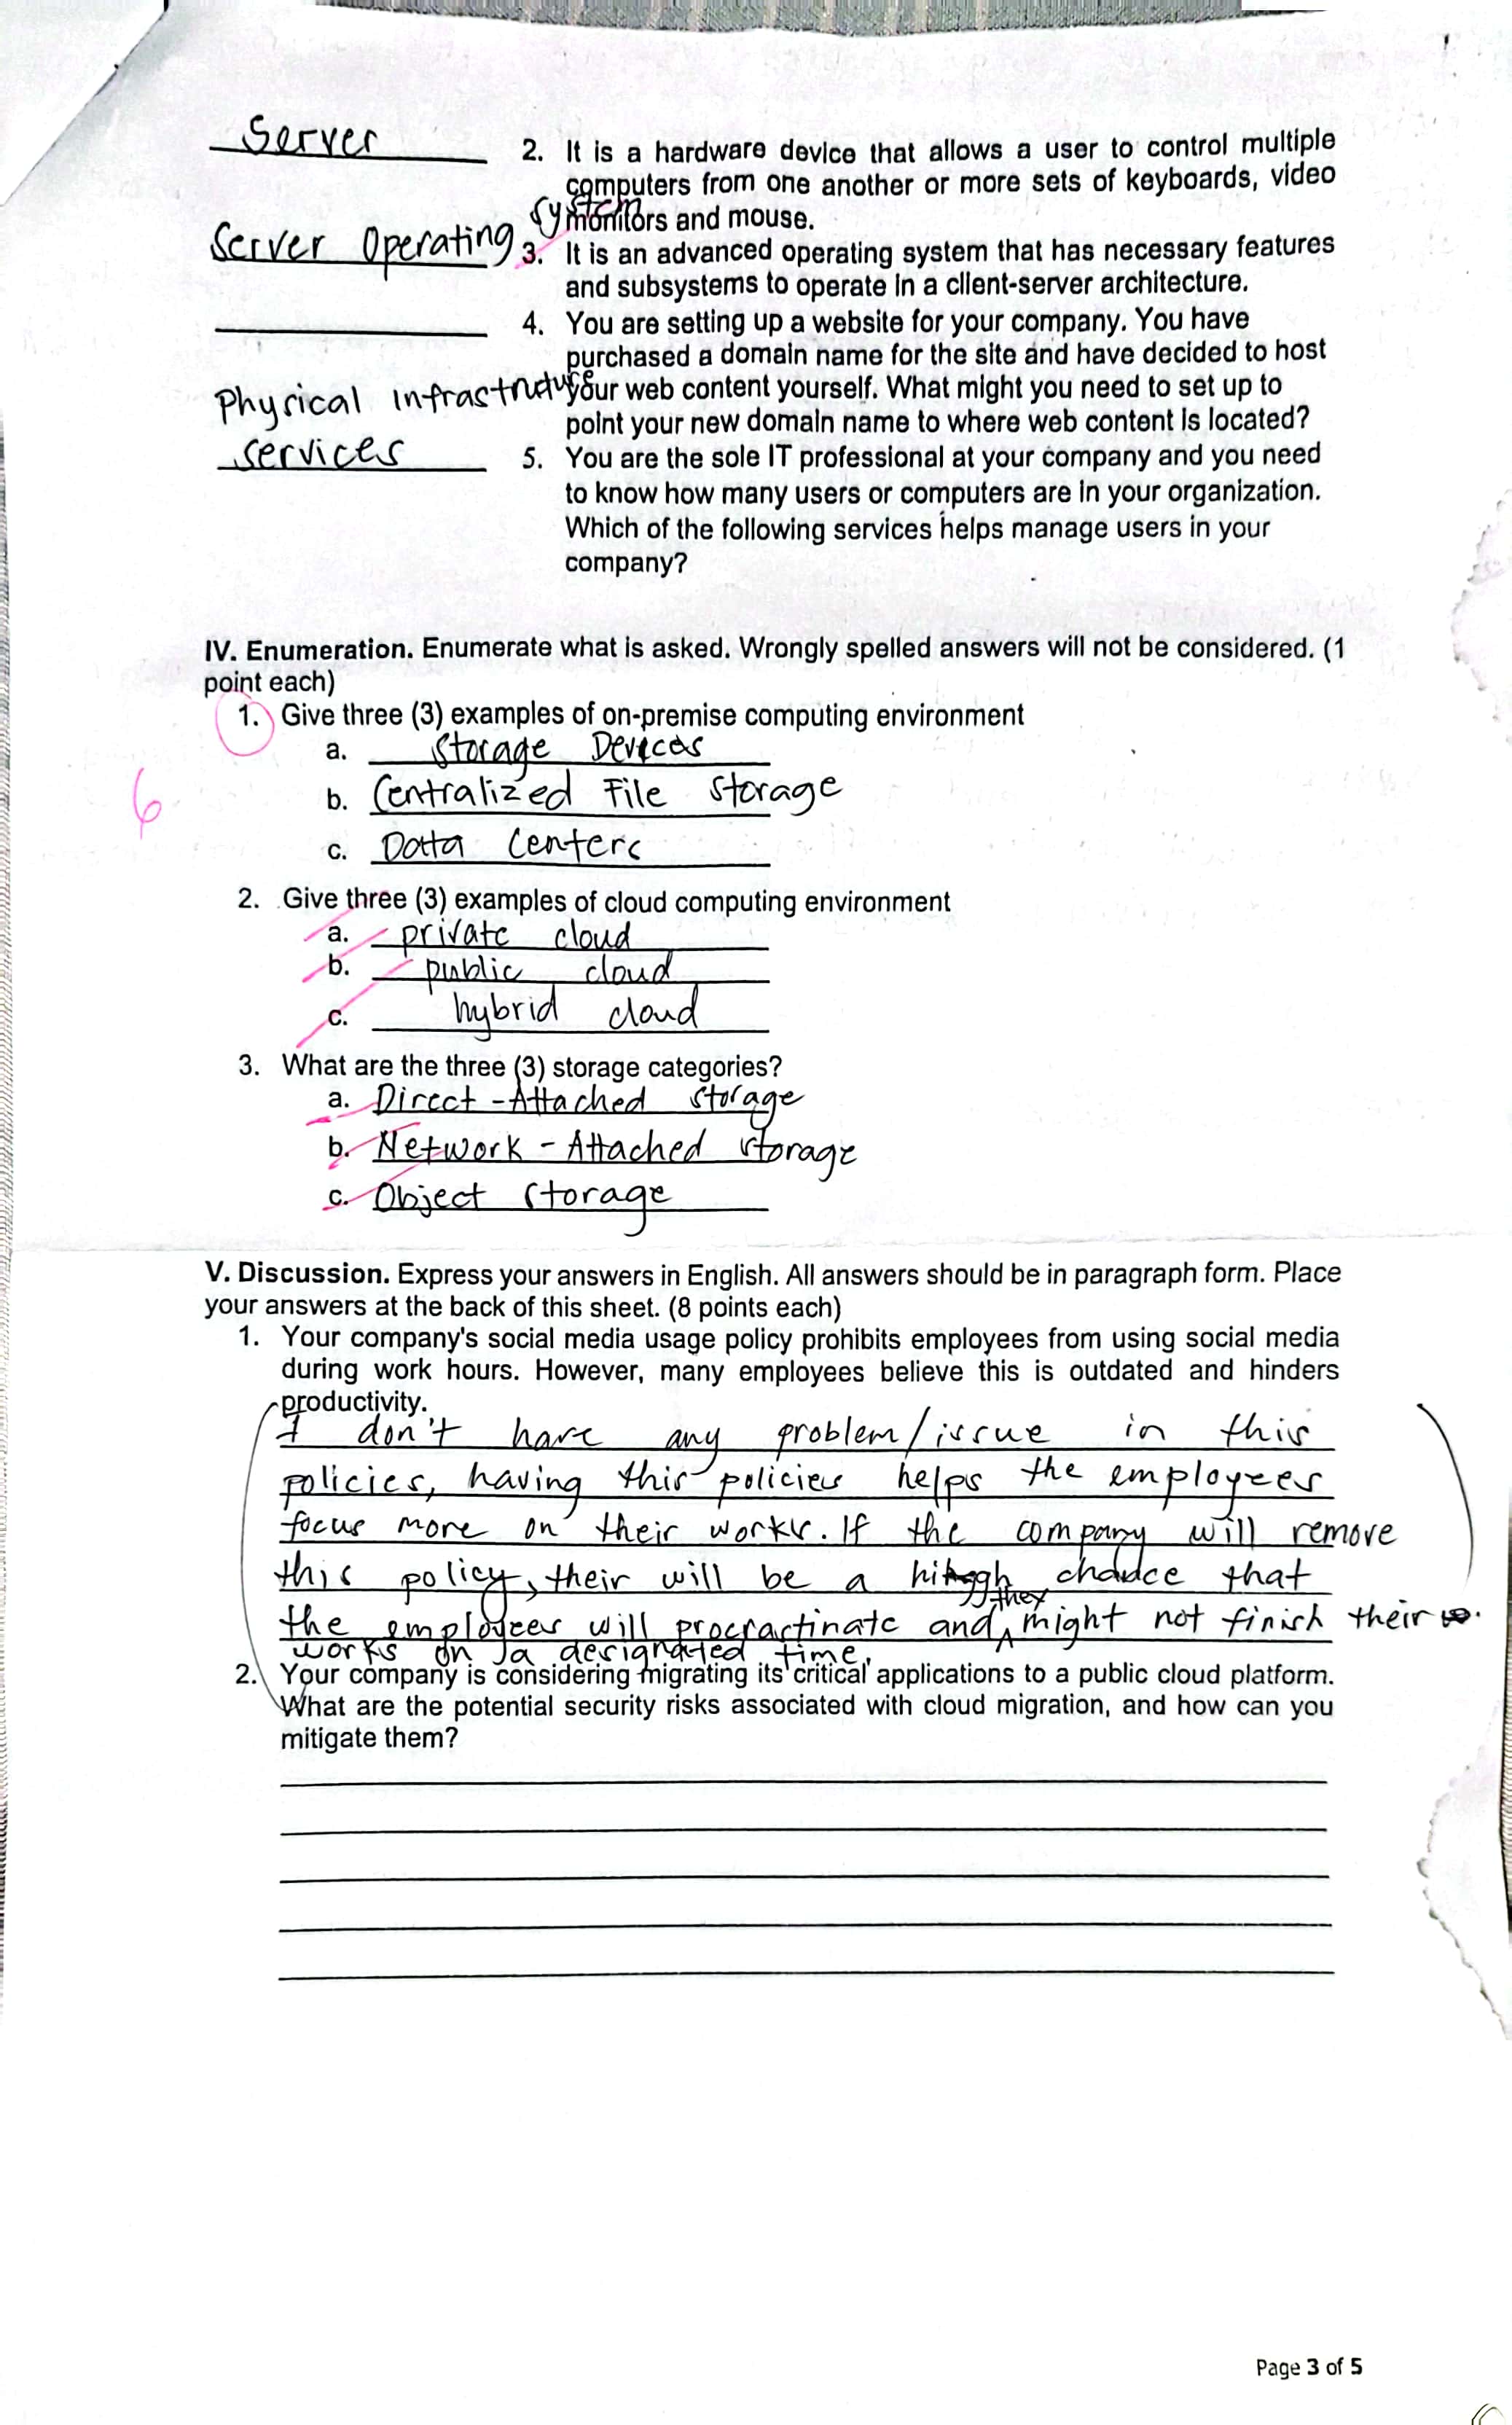 Server
2. It is a hardware device that allows a user to control multiple
computers from one another or more sets of keyboards, video
monitors and mouse.
Server Operating System
3. It is an advanced operating system that has necessary features
and subsystems to operate in a client-server architecture.
4. You are setting up a website for your company. You have
purchased a domain name for the site and have decided to host
your web content yourself. What might you need to set up to
point your new domain name to where web content is located?
Physical Infrastructure
services
5. You are the sole IT professional at your company and you need
to know how many users or computers are in your organization.
Which of the following services helps manage users in your
company?
IV. Enumeration. Enumerate what is asked. Wrongly spelled answers will not be considered. (1
point each)
1. Give three (3) examples of on-premise computing environment
a. Storage Devices
b. Centralized File Storage
6
c. Data Centers
2. Give three (3) examples of cloud computing environment
a. private cloud
b. public cloud
c. hybrid cloud
3. What are the three (3) storage categories?
a. Direct-Attached storage
b. Network-Attached storage
c. Object storage
V. Discussion. Express your answers in English. All answers should be in paragraph form. Place
your answers at the back of this sheet. (8 points each)
1. Your company's social media usage policy prohibits employees from using social media
during work hours. However, many employees believe this is outdated and hinders
productivity.
I don't have any problem/issue in this
policies, having this policies helps the employees
focus more on their works. If the company will remove
this policy, their will be a high chance that
the employees will procrastinate and they might not finish their
works on a designated time.
2. Your company is considering migrating its critical applications to a public cloud platform.
What are the potential security risks associated with cloud migration, and how can you
mitigate them?
Page 3 of 5